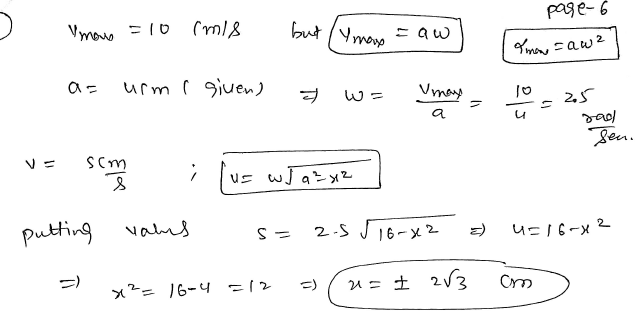 page-6
Vmax = 10 cm/s but Vmax = aω αmax = aω²
a = 4cm (given) ⇒ ω = Vmax/a = 10/4 = 2.5 rad/sec.
v = 5cm/s ; v = ω√a²-x²
putting values 5 = 2.5 √16-x² ⇒ 4 = 16-x²
⇒ x² = 16-4 = 12 ⇒ x = ± 2√3 cm